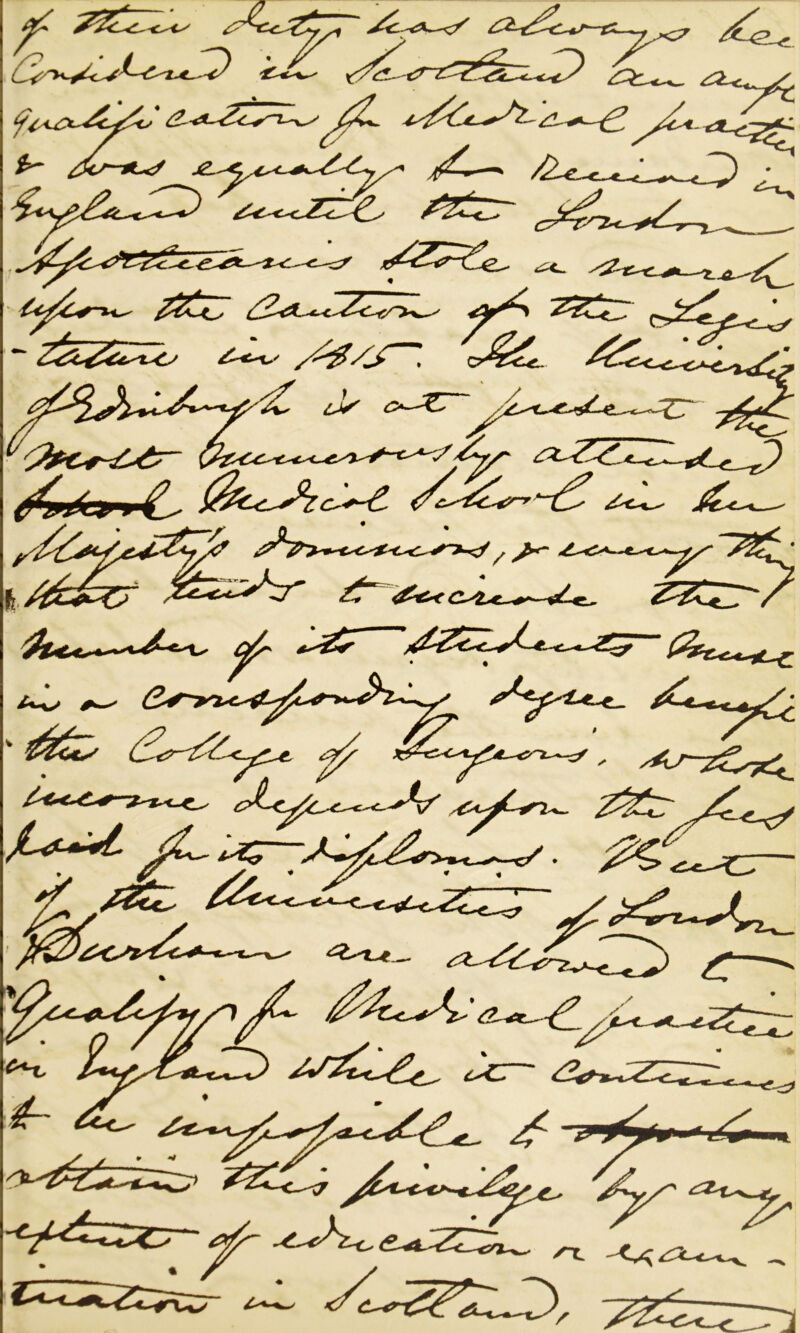 of their duty has always bee
Considered in Scotland an ample
qualification for Medical practice
& was equally so received in
England until the London
Apothecaries stole a march
upon the Caution of the Legis
-tature in 1815. The University
of Edinburgh is at present the
most numerously attended
School Medical School in her
Majesty's dominions, & every thing
that tends to increase the
number of its students must
in a corresponding degree benefit
the College of Surgeons, whose
income depends upon the fees
paid for its diplomas. But
if the Universities of London
& Durham are allowed to
Qualify for Medical practice
in England while it continues
to be impossible to
obtain this privilege by any
extent of education or exam-
ination in Scotland, there